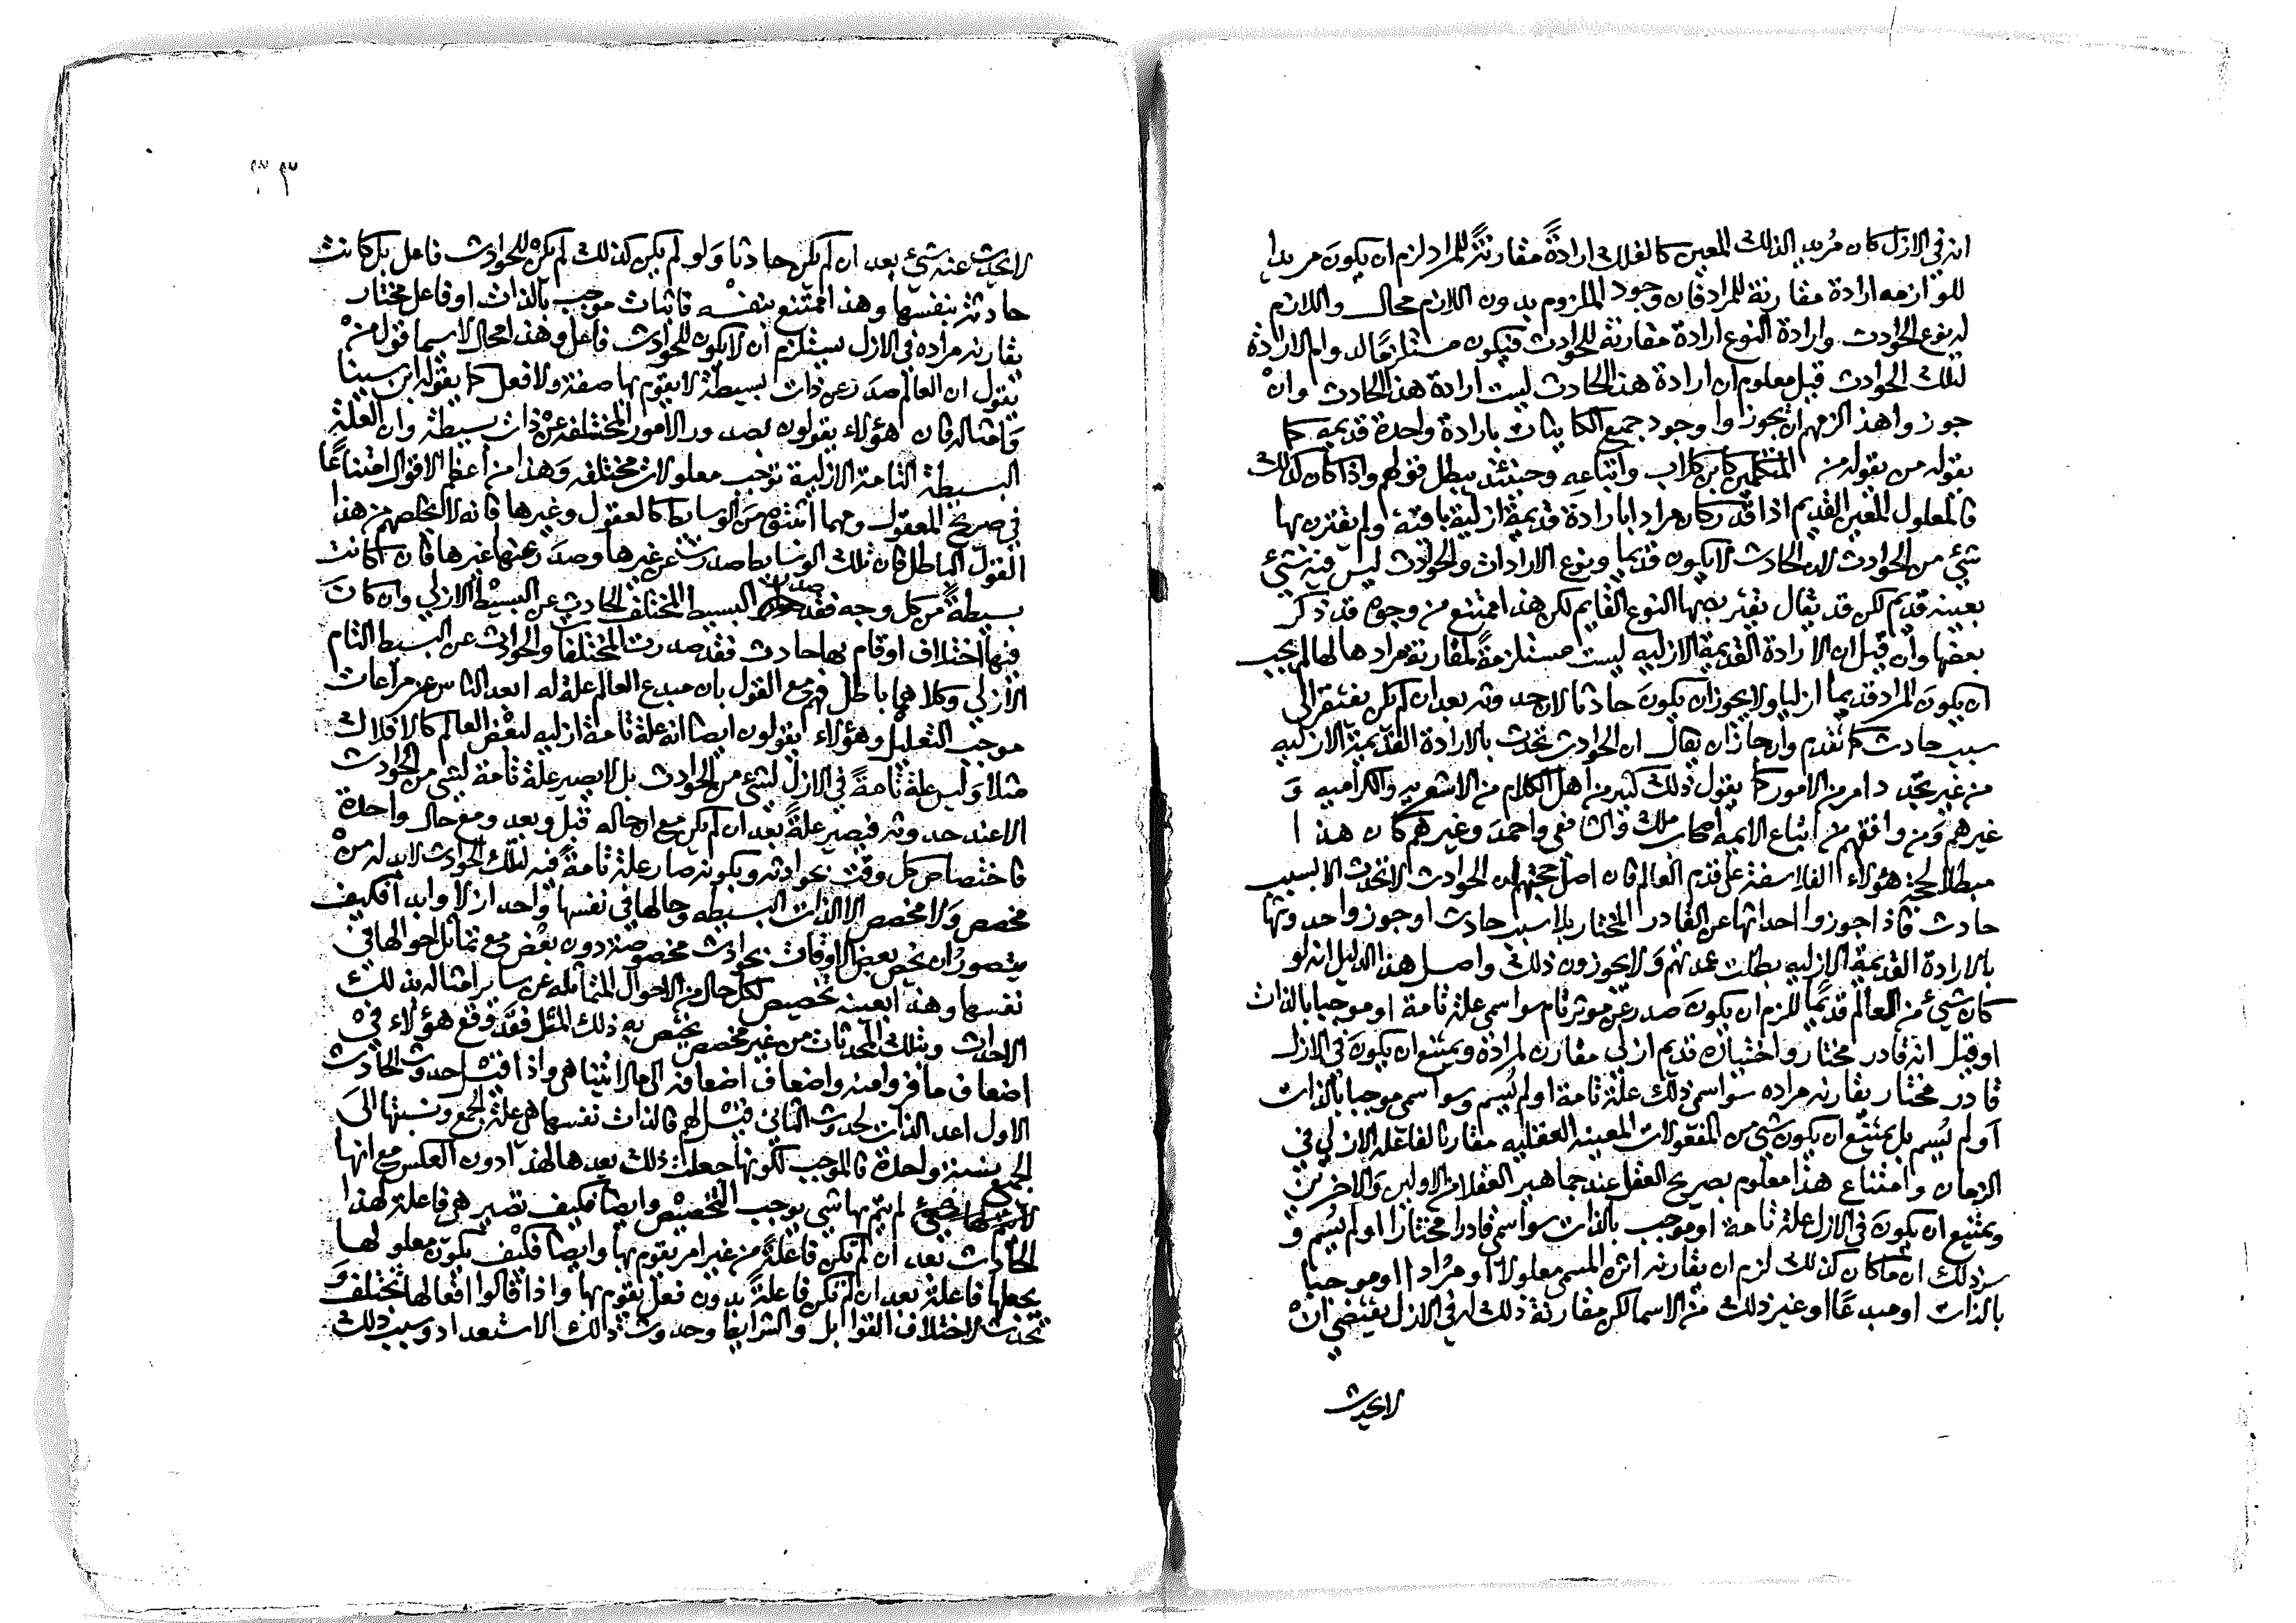 انه في الازل كان مُريد الذلك المعين كالفلك ارادةً مقارنةً للمراد لزم ان يكونَ مريدا
للوازمه ارادة مقارنة للمراد فان وجود الملزوم بدون اللازم محال واللازم
له نوع الحوادث وارادة النوع ارادة مقارنة للحوادث فيكون مستلزمًا لدوام الارادة
لتلك الحوادث قيل معلوم ان ارادة هذا الحادث ليست ارادة هذا الحادث وانْ
جوزوا هذا لزمهم ان يجوزوا وجود جميع الكاينات بارادة واحدة قديمه كما
يقوله من يقوله من المتكلمين كابن كلاب واتباعِه وحينئذٍ يبطل قولهم واذا كان كذلك
فالمعلول المعين القديم اذا قدّر كان مرادا بارادة قديمة ازلية باقية ولم يقترن بها
شيء من الحوادث لان الحادث لا يكون قديما ونوع الارادات والحوادث ليس فيه شيء
بعينه قديم لكن قد يقال يقترن بها النوع القايم لكن هذا ممتنع من وجوه قد ذكر
بعضها وان قيل ان الارادة القديمة الازليه ليست مستلزمةً لمقارنة مرادها لها لم يجب
ان يكونَ المراد قديما ازليا ولا يجوز ان يكونَ حادثا لان حدوثه بعد ان لم يكن يفتقر الى
سبب حادث كما تقدم وان جاز ان يقال ان الحوادث تحدث بالارادة القديمية الازليه
من غير تجدد امر من الامور كما يقول ذلك كثير من اهل الكلام من الاشعريه والكراميه وَ
غيرهم وَمن وافقهم من اتباع الايمه اصحاب ملك والشافعي واحمدَ وغيرهم كان هذا
مبطلا لحجة هؤلاء الفلاسفة على قدم العالم فان اصل حجتهم ان الحوادث لا تحدث الا بسبب
حادث فاذا جوزوا احداثها عن القادر المختار بلا سبب حادث او جوزوا حدوثها
بالارادة القديمة الازليه بطلت عمدتهم وَلا يجوزون ذلك واصل هذا الدليل انه لو
كان شيئ من العالم قديمًا للزم ان يكونَ صدر عن موثر تام سوا سمى علة تامة او موجبا بالذات
او قيل انه قادر مختار واختياره قديم ازلي مقارن لمراده ويمتنع ان يكونَ في الازل
قادر مختار يقارنه مراده سوا سمى ذلك علة تامة او لم يُسم وسوا سمى موجبا بالذات
اَو لم يُسم بل يمتنع ان يكون شي من المفعولات المعينه العقليه مقارنا لفاعله الازلي في
الزمان وامتناع هذا معلوم بصريح العقل عند جماهير العقلا من الاولين وَالاخرين
ويمتنع ان يكونَ في الازل علة تامة او موجب بالذات سوا سمى قادرا مختارًا او لم يُسم وَ
سر ذلك ان ما كان كذلك لزم ان يقارنه اثره المسمى معلولا او مُرادا او موجبا
بالذات او مبدعًا او غير ذلك من الاسما لكن مقارنة ذلك له في الازل يقتضي انْ
لا يحدث
٣٣
لا يحدث عنه شيئ بعد ان لم يكن حادثا وَلو لم يكن كذلك لم يكنْ للحوادث فاعل بل كانت
حادثة بنفسها وهذا ممتنع بنفسْه فاثبات موجب بالذات او فاعل مختار
يقارنه مراده في الازل يستلزم ان لا يكون للحوادث فاعل وهذا محال لا سيما قول منْ
يقول ان العالم صدر عن ذات بسيطة لا يقوم بها صفة ولا فعل كما يقوله ابن سينا
وَامثاله فان هؤلاء يقولون بصدور الامور المختلفه عن ذات بسيطة وان العلة
البسيطة التامة الازلية توجب معلولات مختلفه وَهذا من اعظم الاقوال امتناعًا
في صريح المعقول ومهما اثبتوه من الوسايط كالعقول وغيرها فانه لا يخلصهم من هذا
القول الباطل فان تلك الوسايط صدرت عن غيرها وصدَر عنها غيرها فان كانت
بسيطةً من كل وجه فقد صدر البسيط المختلف الحادث عن البسيط الازلي وان كانَ
فيها اختلاف او قام بها حادث فقد صدرت المختلفات والحوادث عن البسيط التام
الازلي وكلاهما باطل فهم مع القول بان مبدع العالم علة له ابعد الناس عن مراعات
موجب التعليل وهؤلاء يقولون ايضا انه علة تامة ازليه لبعض العالم كالافلاك
مثلا وَليس علة تامةً في الازل لشيء من الحوادث بل لا يصير علة تامة لشي من الحوادث
الا عند حدوثه فيصير علةً بعد ان لم يكن مع ان حاله قبل وبعد ومع حال واحدة
فاختصاص كل وقت بحوادثه وبكونه صار علة تامةً فيه لتلك الحوادث لابد له منْ
مخصص وَلا مخصص الا الذات البسيطه وحالها في نفسها واحد ازلا وابدا فكيف
يتصوّر ان يخص بعض الاوقات بحوادث مخصوصة دون بعض مع تماثل احوالها في
نفسها وهذا بعينه تخصيص لكل حال من الاحوال المتماثله عن ساير امثاله بذلك
الاحداث وبتلك المحدثات من غير مخصص يختص به ذلك المثل فقد وقع هؤلاء في
اضعاف ما فروا منه واضعاف اضعافه الى ما لا يتناهى واذا قيل حدوث الحادث
الاول اعد الذات لحدوث الثاني قيل لهم فالذات نفسها هي علة الجمع ونسبتها الىَ
الجميع نسبة واحدة فالموجب لكونها جعلت ذلك يعدها لهذا دون العكس مع انها
لم يقم بها شي يوجب التخصيص وايضا فكيف تصير هي فاعلة لهذا
الحادث بعد ان لم تكن فاعلةً من غير امر يقوم بها وايضا فكيف يكون معلولها
يجعلها فاعلة بعد ان لم تكن فاعلةً بدون فعل يقوم بها واذا قالوا افعالها تختلفَ
تحدث لاختلاف القوابل والشرايط وحدوث ذلك الاستعداد وسبب ذلك